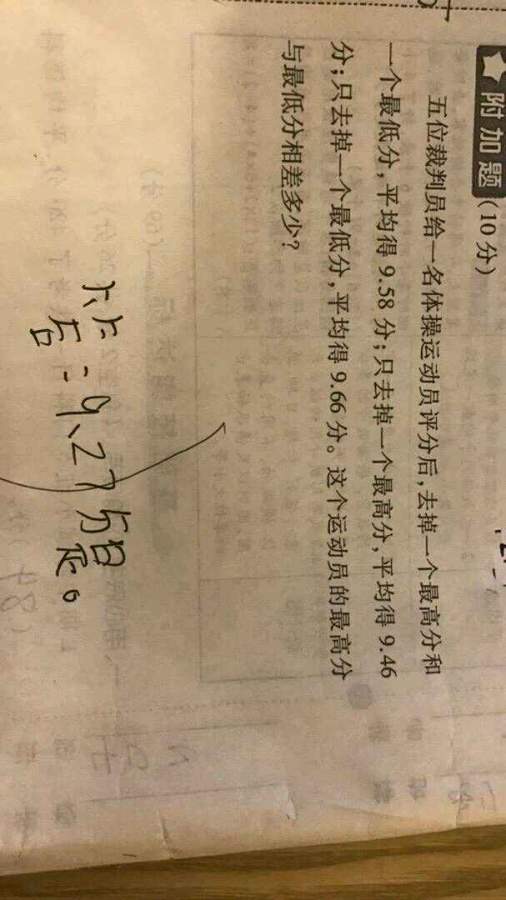 附加题（10分）
五位裁判员给一名体操运动员评分后，去掉一个最高分和
一个最低分，平均得 9.58 分；只去掉一个最高分，平均得 9.46
分；只去掉一个最低分，平均得 9.66 分。这个运动员的最高分
与最低分相差多少？
9、27